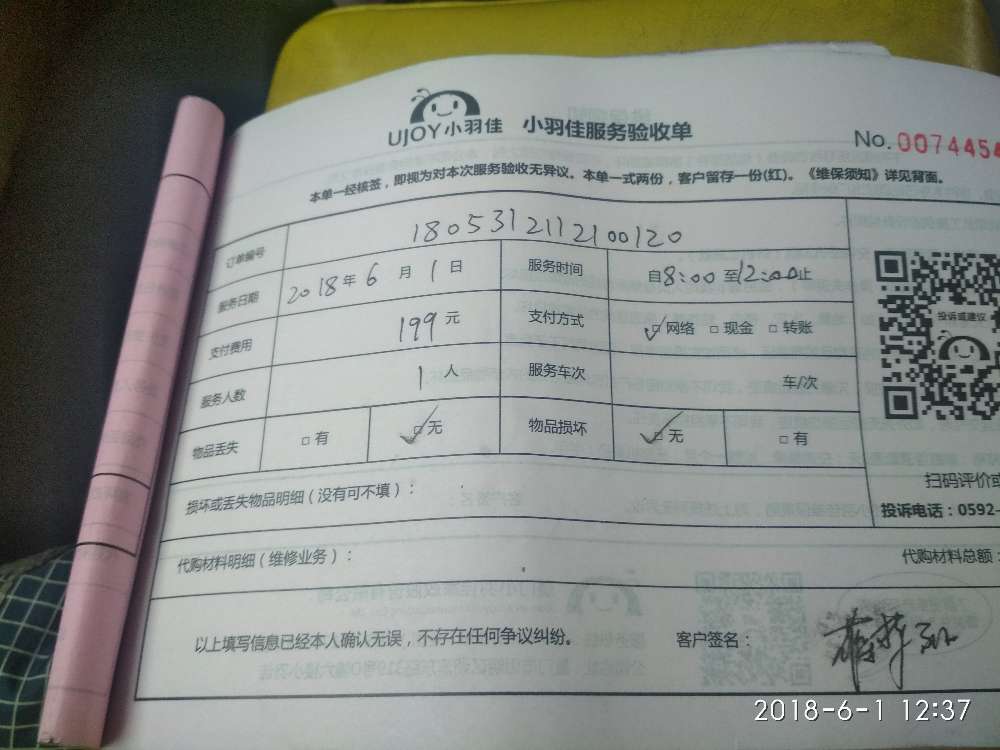 UJOY小羽佳 小羽佳服务验收单
No.0074454
本单一经核签，即视为对本次服务验收无异议。本单一式两份，客户留存一份(红)。《维保须知》详见背面。
订单编号 1805312112100120
服务日期 2018年6月1日 服务时间 自8:00至12:00止
支付费用 199元 支付方式 □网络 □现金 □转账
服务人数 1人 服务车次 车/次
物品丢失 □有 □无 物品损坏 □无 □有
投诉或建议
扫码评价或
投诉电话：0592-
损坏或丢失物品明细（没有可不填）：
代购材料明细（维修业务）： 代购材料总额：
以上填写信息已经本人确认无误，不存在任何争议纠纷。 客户签名：
2018-6-1 12:37